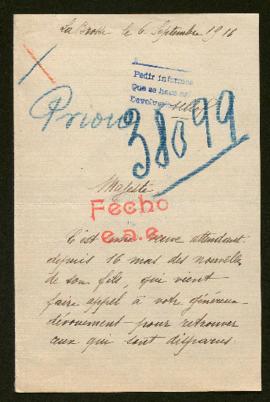 La        le 6 Septembre 1916
Pedir informes
Que se hace
Devolver
38099
Majesté
Fecho
e.a.e.
C'est une veuve attendant
depuis 16 mois des nouvelles
de son fils, qui vient
faire appel à votre généreux
dévouement pour retrouver
ceux qui sont disparus.